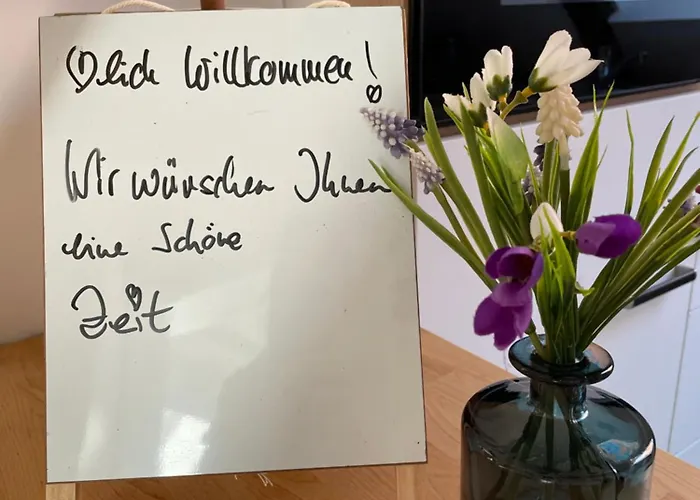 ♡lich Willkommen!
Wir wünschen Ihnen
eine Schöne
Zeit